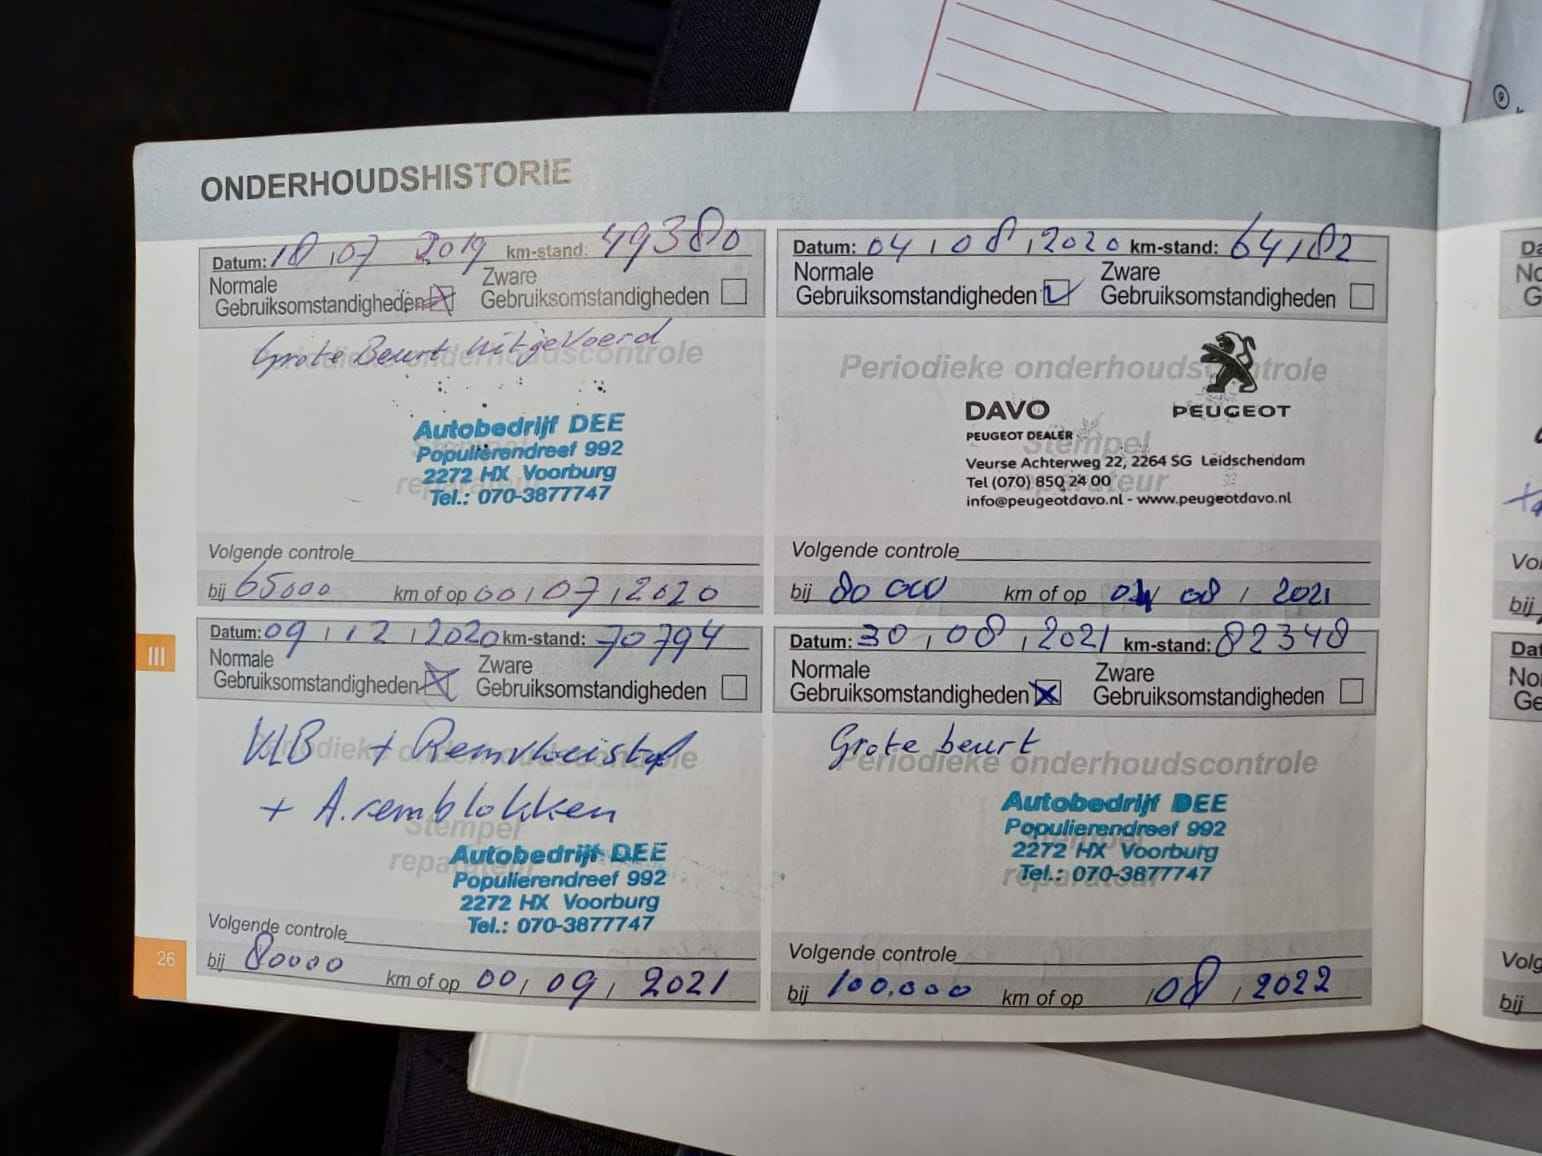 ONDERHOUDSHISTORIE
Datum: 18 , 07 2019 km-stand: 49380
Normale
Gebruiksomstandigheden
Zware
Gebruiksomstandigheden
Grote Beurt uitgevoerd
Periodieke onderhoudscontrole
Stempel
reparateur
Autobedrijf DEE
Populierendreef 992
2272 HX Voorburg
Tel.: 070-3877747
Volgende controle
bij 65000 km of op 00 , 07 , 2020
Datum: 04 , 08 , 2020 km-stand: 64182
Normale
Gebruiksomstandigheden
Zware
Gebruiksomstandigheden
Periodieke onderhoudscontrole
Stempel
reparateur
DAVO PEUGEOT
PEUGEOT DEALER
Veurse Achterweg 22, 2264 SG Leidschendam
Tel (070) 850 24 00
info@peugeotdavo.nl - www.peugeotdavo.nl
Volgende controle
bij 80 000 km of op 04 08 , 2021
III
Datum: 09 , 12 , 2020 km-stand: 70794
Normale
Gebruiksomstandigheden
Zware
Gebruiksomstandigheden
KLB + Remvloeistof
+ A.remblokken
Periodieke onderhoudscontrole
Stempel
reparateur
Autobedrijf DEE
Populierendreef 992
2272 HX Voorburg
Tel.: 070-3877747
Volgende controle
bij 80000 km of op 00 , 09 , 2021
Datum: 30 , 08 , 2021 km-stand: 82348
Normale
Gebruiksomstandigheden
Zware
Gebruiksomstandigheden
Grote beurt
Periodieke onderhoudscontrole
Stempel
reparateur
Autobedrijf DEE
Populierendreef 992
2272 HX Voorburg
Tel.: 070-3877747
Volgende controle
bij 100.000 km of op , 08 , 2022
26